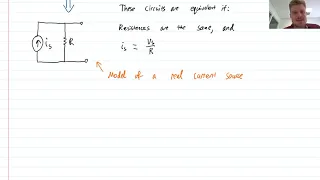 These circuits are equivalent if:
Resistances are the same, and
i_s = V_s/R
i_s
R
Model of a real current source